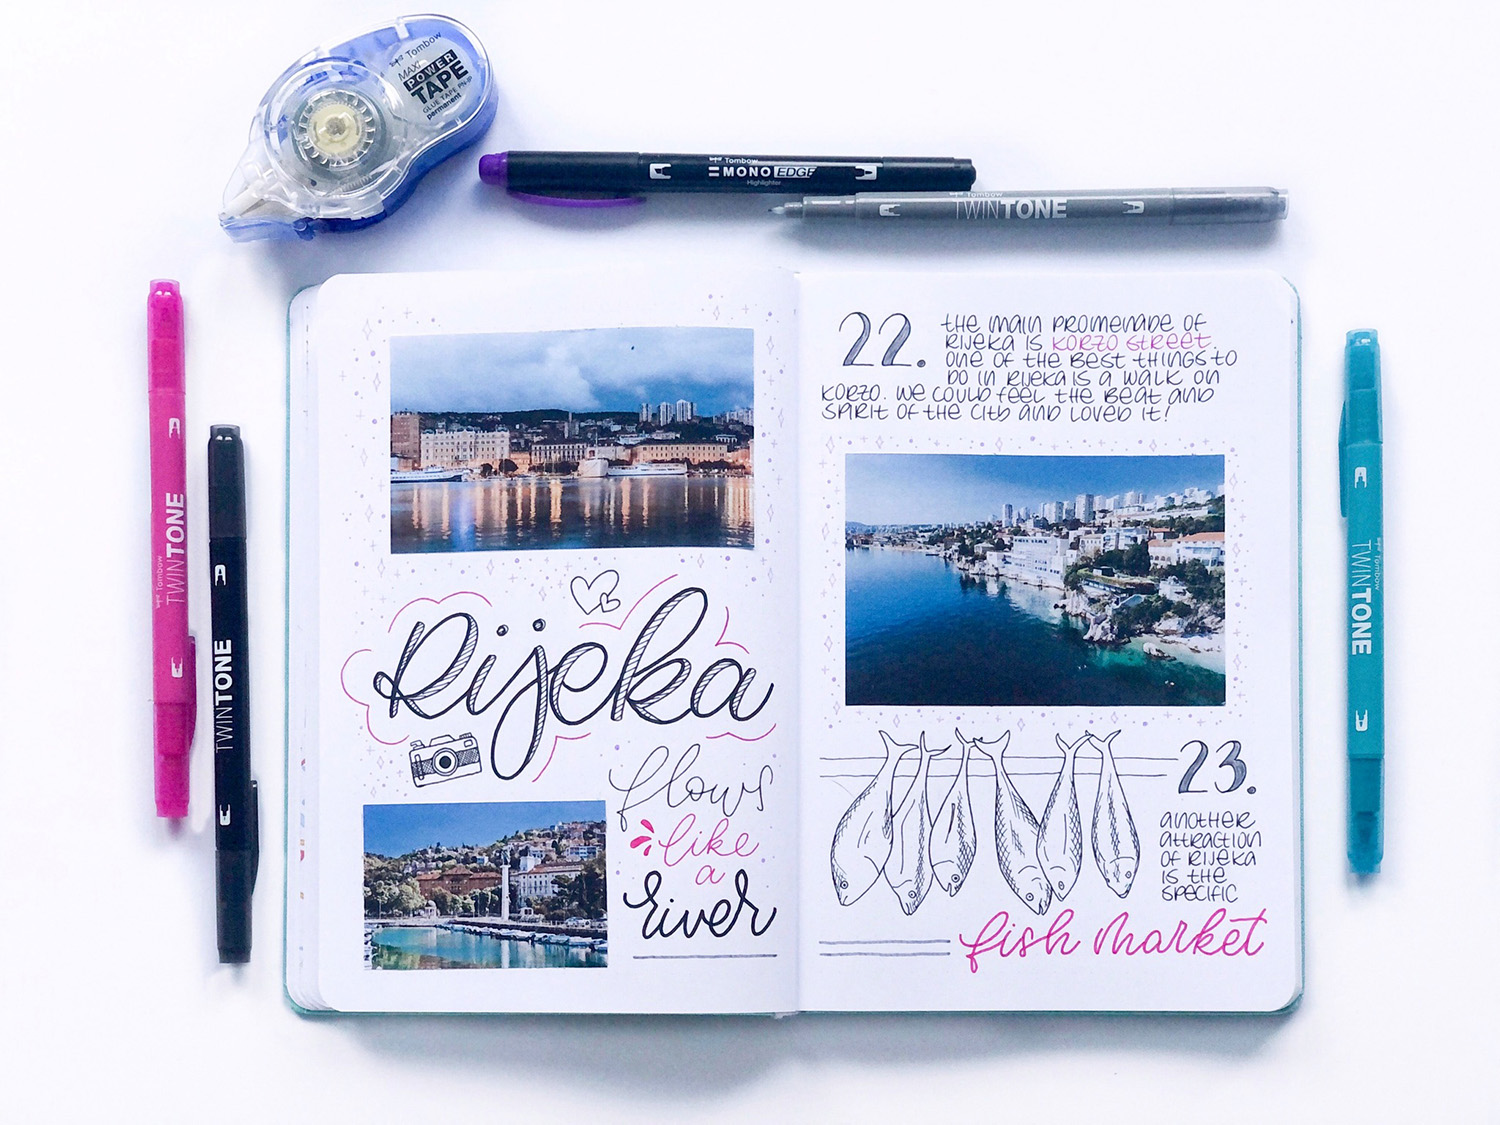 Tombow
MAXI
POWER
TAPE
GLUE TAPE PN-IP
permanent
Tombow
MONO EDGE
Highlighter
Tombow
TWINTONE
Tombow
TWINTONE
TWINTONE
Tombow
TWINTONE
Rijeka
flows
like
a
river
22.
the main promenade of
Rijeka is Korzo Street.
One of the best things to
do in Rijeka is a walk on
Korzo. We could feel the beat and
spirit of the city and loved it!
23.
another
attraction
of Rijeka
is the
specific
fish market